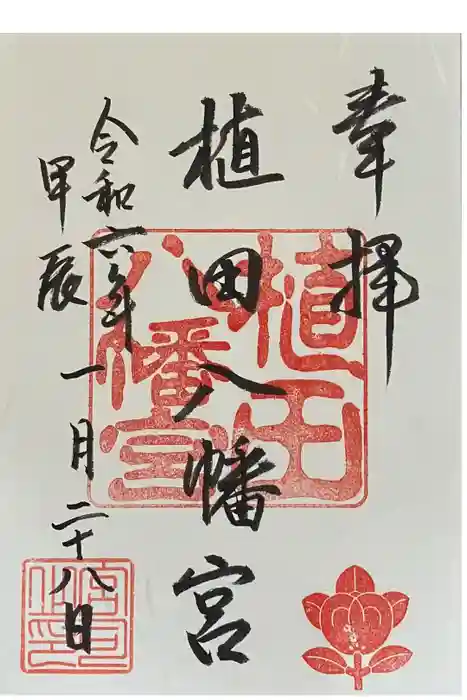 奉拝
植田八幡宮
令和六年
甲辰
一月二十八日
植田
八幡宮
宮司之印